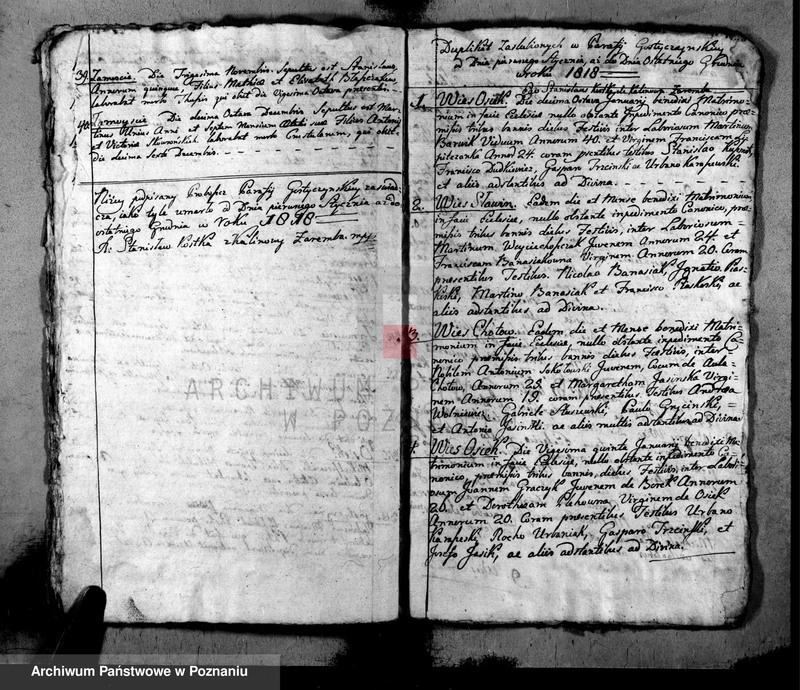 39. Zamoscie. Die Trigesima Novembris Sepultus est Stanislaus
Annorum quinque Filius Mathiæ et Elisabeth
laborabat morbo obiit die Vigesima Octava præsentis.
40. Die decima Octava Decembris Sepultus est Mar-
tinus Unius Anni et Septem Mensium Filius Antonij
et Victoria laborabat morbo qui obiit
die decima Sexta Decembris.
Niżey podpisany Proboszcz Parafij Gostyczynskiey zaswiad-
cza, iako tyle umarło od Dnia pierwszego Stycznia az do
ostatniego Grudnia w Roku 1818
X. Stanisław Kostka z Kalinowy Zaremba mpp.
Duplikat Zaslubionych w Parafij Gostyczynskiey
od Dnia pierwszego Stycznia, az do Dnia Ostatniego Grudnia
w roku 1818
Ego Stanislaus Kostka de Kalinowa Zaremba
1. Wies Osiek. Die decima Octava Januarij benedixi Matrimo-
nium in facie Ecclesiæ nullo obstante Impedimento Canonico præ-
missis tribus bannis diebus Festivis inter Laboriosum Martinum
Barwik Viduum Annorum 40. et Virginem Franciscam
Annor. 24. coram præsentibus testibus Stanislao
Francisco Dudkiewicz, Gaspar Trzcinski ac Urbano Karapewski.
et aliis adstantibus ad Divina.
2. Wies Sławin. Eadem die et Mense benedixi Matrimonium
in facie Ecclesiæ, nullo obstante impedimento Canonico, præ-
missis tribus bannis diebus Festivis, inter Laboriosum
Martinum Woyciechopciak Juvenem Annorum 24. et
Franciscam Banasiakowna Virginem Annorum 20. Coram
præsentibus Testibus. Nicolao Banasiak, Ignatio
Martino Banasiak et Francisco ac
aliis adstantibus ad Divina.
3. Wies Chotow. Eadem die et Mense benedixi Matri-
monium in facie Ecclesiæ, nullo obstante impedimento Ca-
nonico præmissis tribus bannis diebus Festivis, inter
Nobilem Antonium Sokolowski Juvenem, Cocum de Aula
Chotow, Annorum 29. et Margaretham Jasinska Virgi-
nem Annorum 19. coram præsentibus Testibus Andrea
Wolniewicz, Gabriele Paulo
et Antonio Jasinski. ac aliis multis adstantibus ad Divina
4. Wies Osiek. Die Vigesima quinta Januarij benedixi Ma-
trimonium in facie Ecclesiæ, nullo obstante impedimento Ca-
nonico, præmissis tribus bannis, diebus Festivis, inter Labori-
osum Joannem Graczyk Juvenem de Borek Annorum
20. et Dorotheam Virginem de Osiek
Annorum 20. Coram præsentibus Testibus Urbano
Karapeski Rocho Urbaniak, Gasparo Trzcinski, et
Josefo Jasik, ac aliis adstantibus ad Divina.
ARCHIWUM
W POZNA
Archiwum Państwowe w Poznaniu